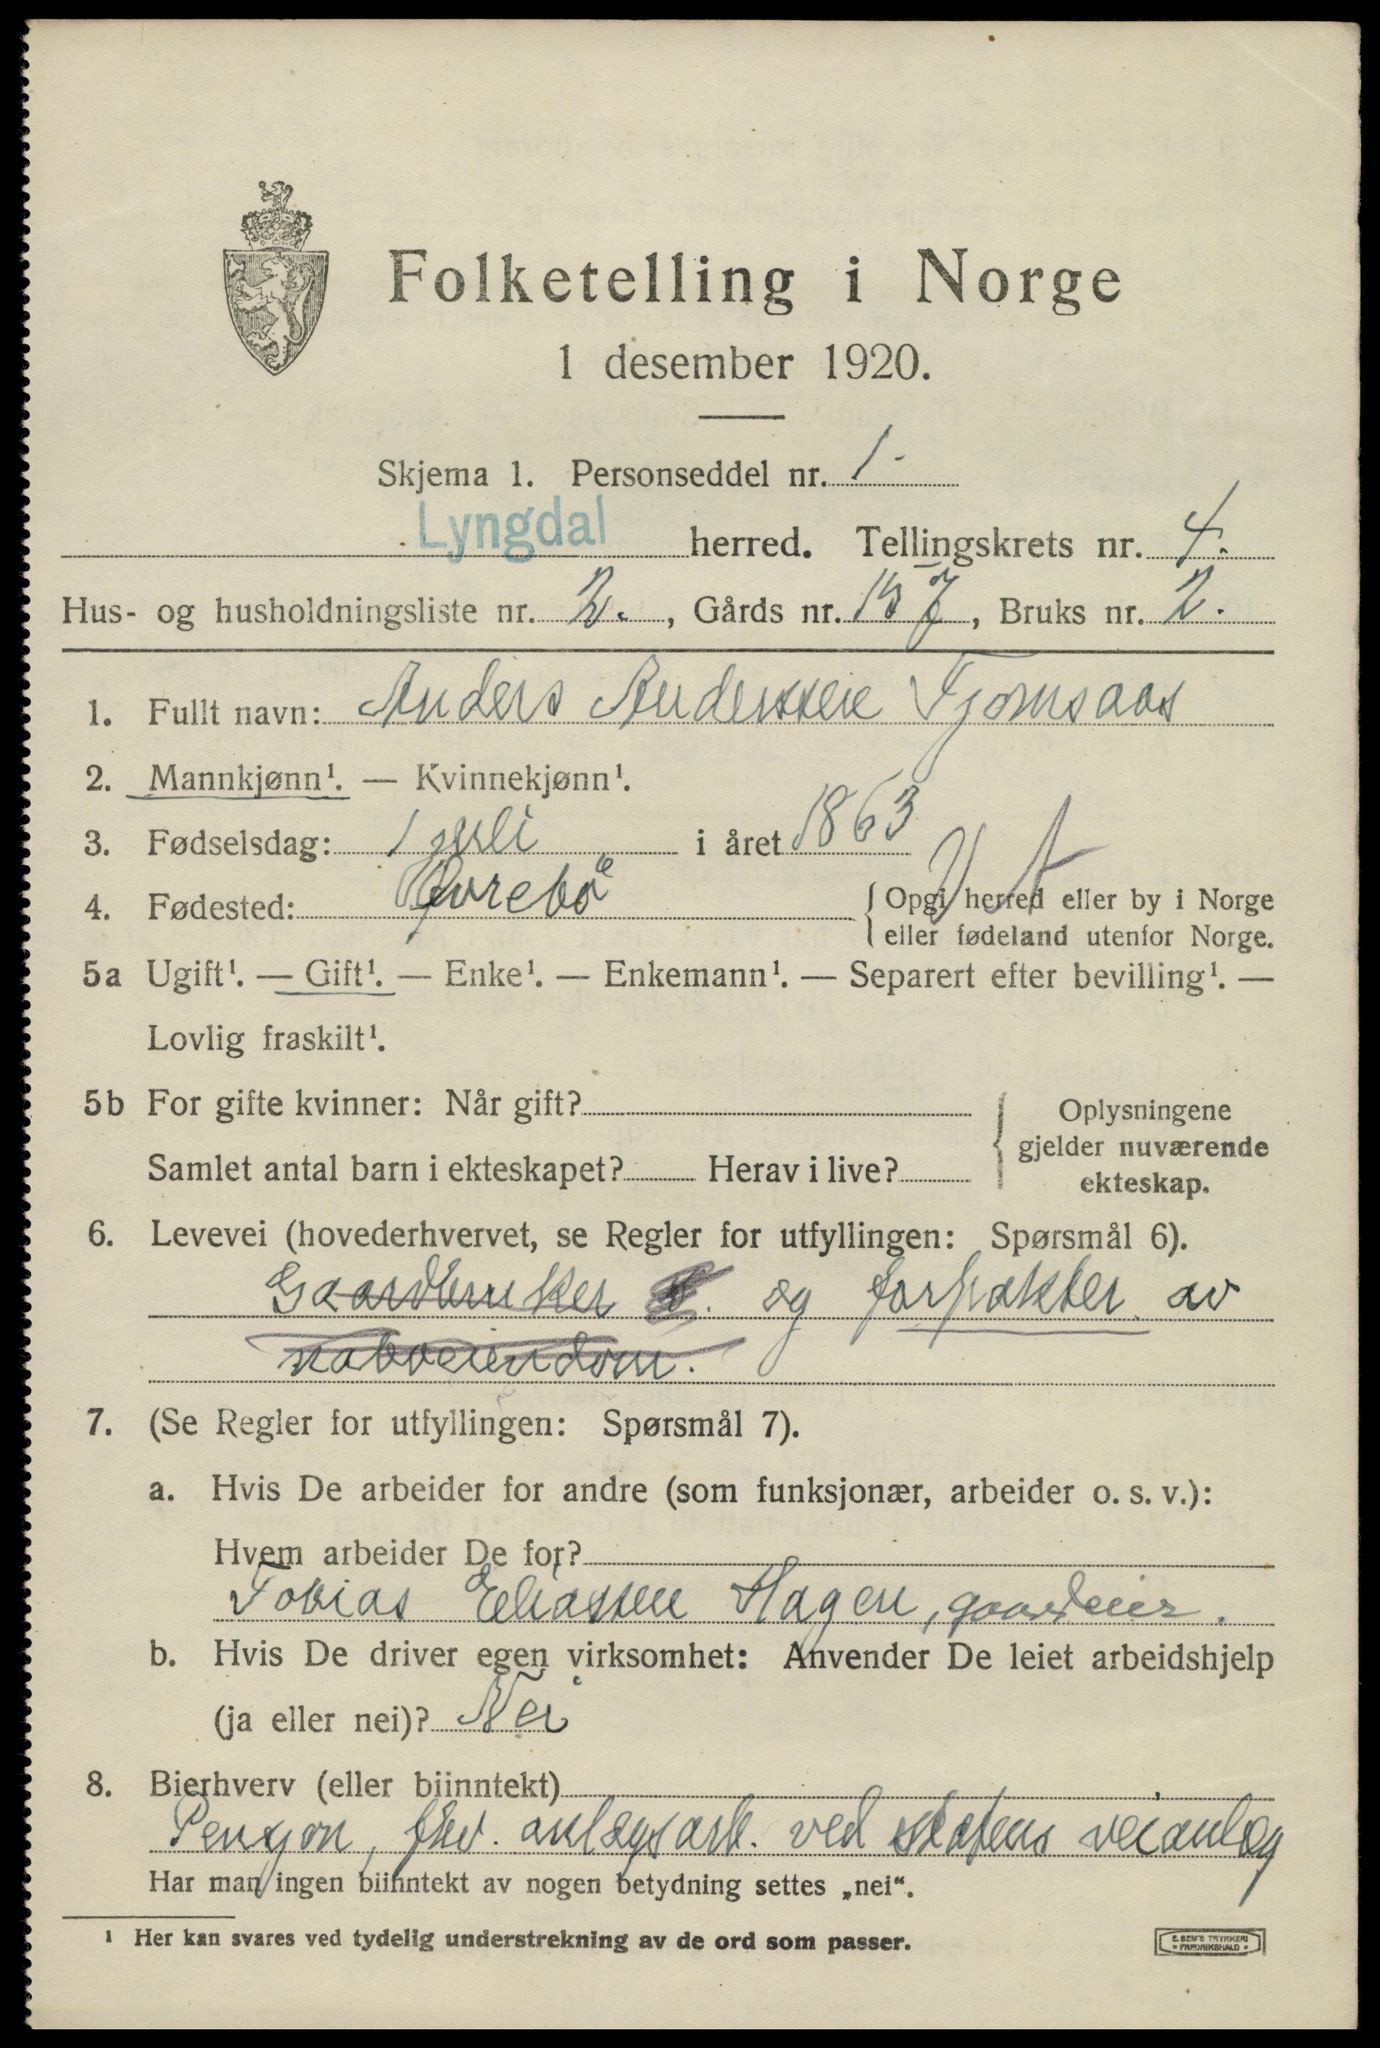 Folketelling i Norge
1 desember 1920.
Skjema 1. Personseddel nr. 1.
Lyngdal herred. Tellingskrets nr. 4.
Hus- og husholdningsliste nr. 2., Gårds nr. 157, Bruks nr. 2.
1. Fullt navn: Anders Anderssen Tjomsaas
2. Mannkjønn¹. — Kvinnekjønn¹.
3. Fødselsdag: 1 juli i året 1863
4. Fødested: Øvrebö { Opgi herred eller by i Norge
eller fødeland utenfor Norge.
5a Ugift¹. — Gift¹. — Enke¹. — Enkemann¹. — Separert efter bevilling¹. —
Lovlig fraskilt¹.
5b For gifte kvinner: Når gift? { Oplysningene
gjelder nuværende
Samlet antal barn i ekteskapet? Herav i live? ekteskap.
6. Levevei (hovederhvervet, se Regler for utfyllingen: Spørsmål 6).
Gaardbruker og forpakter av
naboeiendom.
7. (Se Regler for utfyllingen: Spørsmål 7).
a. Hvis De arbeider for andre (som funksjonær, arbeider o. s. v.):
Hvem arbeider De for?
Tobias Eliassen Hagen, gaardeier.
b. Hvis De driver egen virksomhet: Anvender De leiet arbeidshjelp
(ja eller nei)? Nei
8. Bierhverv (eller biinntekt)
Pensjon, fhv. anlægsarb. ved statens veianlæg
Har man ingen biinntekt av nogen betydning settes „nei“.
¹ Her kan svares ved tydelig understrekning av de ord som passer.
E. SEM'S TRYKKERI
FREDRIKSHALD